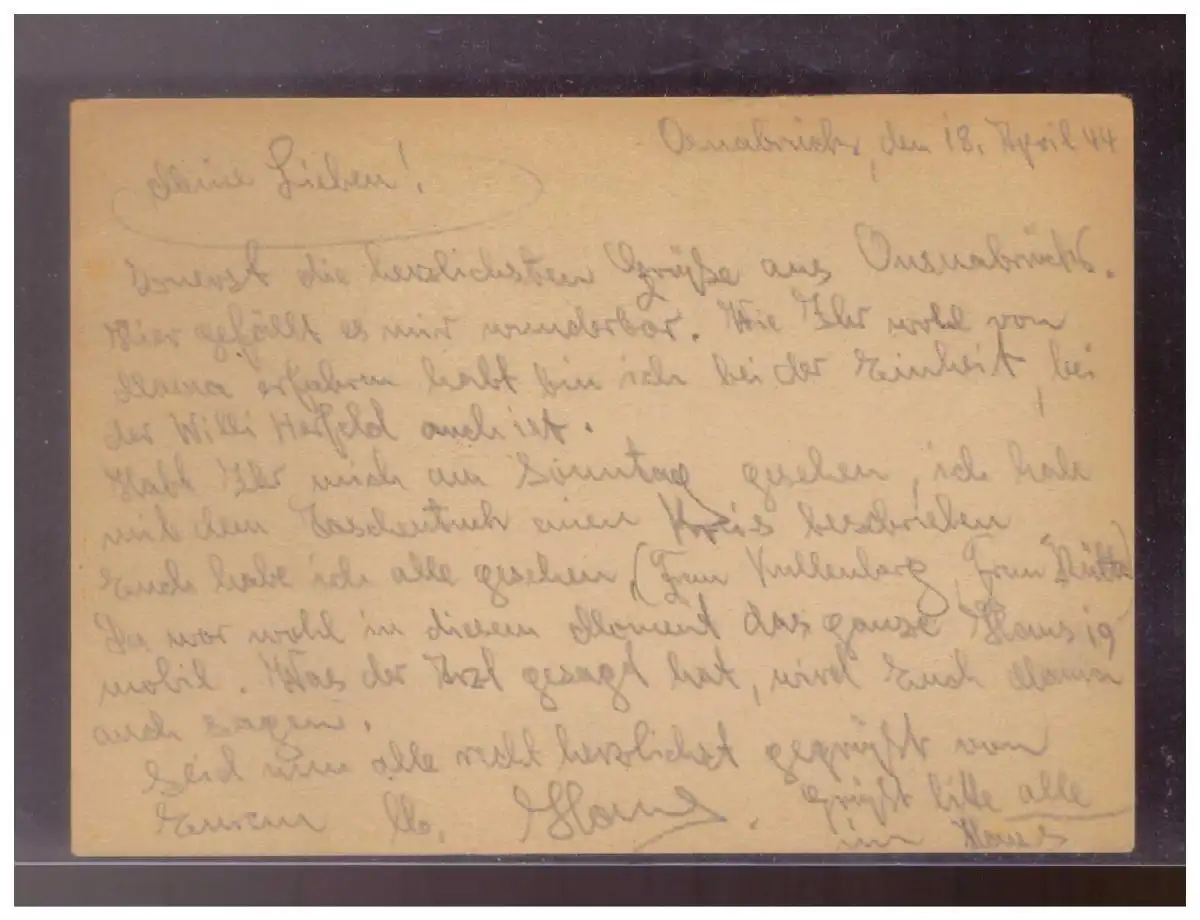 Osnabrück, den 18. April 44
Meine Lieben!
Zuerst die herzlichsten Grüße aus Osnabrück.
Hier gefällt es mir wunderbar. Wie Ihr wohl von
Mama erfahren habt bin ich bei der Einheit, bei
der Willi Herfeld auch ist.
Habt Ihr mich am Sonntag gesehen, ich habe
mit dem Taschentuch einen Kreis beschrieben
Euch habe ich alle gesehen, (Frau Kullenberg, Frau
Da war wohl in diesem Moment das ganze Haus 19
mobil. Was der Arzt gesagt hat, wird Euch Mama
auch sagen.
Seid nun alle recht herzlichst gegrüßt von
Eurem lb. Hans. Grüßt bitte alle
im Haus